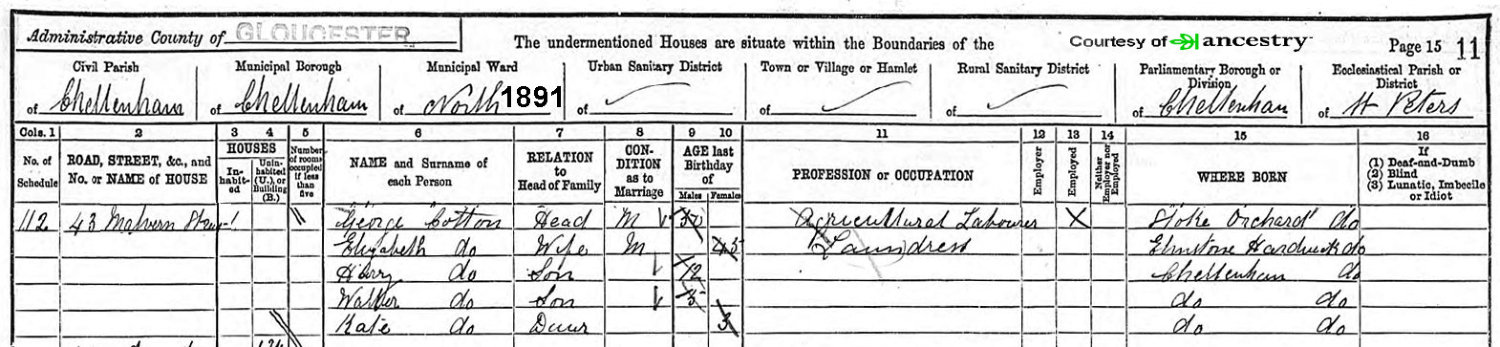 Administrative County of GLOUCESTER
The undermentioned Houses are situate within the Boundaries of the
Courtesy of ancestry
Page 15 11
Civil Parish Municipal Borough Municipal Ward Urban Sanitary District Town or Village or Hamlet Rural Sanitary District Parliamentary Borough or Division Ecclesiastical Parish or District
of Cheltenham of Cheltenham of North 1891 of of of of Cheltenham of St Peters
Cols. 1 2 3 4 5 6 7 8 9 10 11 12 13 14 15 16
No. of Schedule ROAD, STREET, &c., and No. or NAME of HOUSE HOUSES Inhabited Uninhabited (U.), or Building (B.) Number of rooms occupied if less than five NAME and Surname of each Person RELATION to Head of Family CONDITION as to Marriage AGE last Birthday of Males Females PROFESSION or OCCUPATION Employer Employed Neither Employer nor Employed WHERE BORN If (1) Deaf-and-Dumb (2) Blind (3) Lunatic, Imbecile or Idiot
112 43 Malvern 1 George Cotton Head M Agricultural Labourer X Stoke Orchard do
Elizabeth do Wife M 45 Laundress Elmstone Hardwick do
Harry do Son 12 Cheltenham do
Walter do Son 5 do do
Kate do Daur 3 do do